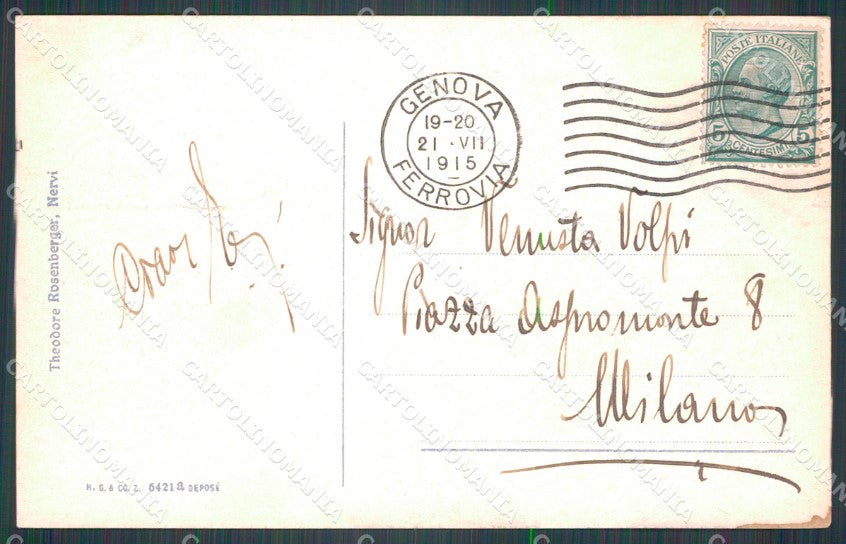 GENOVA
19-20
21 · VII
1915
FERROVIA
POSTE ITALIANE
5 CENTESIMI 5
Signor Venusta Volpi
Piazza Aspromonte 8
Milano
Theodore Rosenberger, Nervi
H. G. & CO. Z. 6421a DEPOSÉ
CARTOLINOMANIA